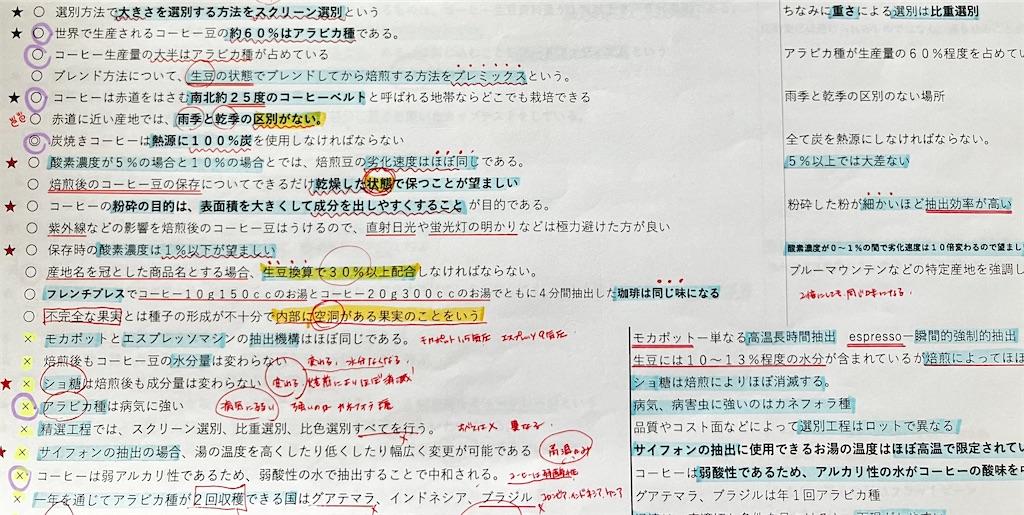 ★ ○ 選別方法で大きさを選別する方法をスクリーン選別という　ちなみに重さによる選別は比重選別
★ ○ 世界で生産されるコーヒー豆の約６０％はアラビカ種である。
○ コーヒー生産量の大半はアラビカ種が占めている　アラビカ種が生産量の６０％程度を占めてい
○ ブレンド方法について、生豆の状態でブレンドしてから焙煎する方法をプレミックスという。
★ ○ コーヒーは赤道をはさむ南北約２５度のコーヒーベルトと呼ばれる地帯ならどこでも栽培できる　雨季と乾季の区別のない場所
○ 赤道に近い産地では、雨季と乾季の区別がない。
◎ 炭焼きコーヒーは熱源に１００％炭を使用しなければならない　全て炭を熱源にしなければならない
★ ○ 酸素濃度が５％の場合と１０％の場合とでは、焙煎豆の劣化速度はほぼ同じである。　５％以上では大差ない
○ 焙煎後のコーヒー豆の保存についてできるだけ乾燥した状態で保つことが望ましい
★ ○ コーヒーの粉砕の目的は、表面積を大きくして成分を出しやすくすることが目的である。　粉砕した粉が細かいほど抽出効率が高い
○ 紫外線などの影響を焙煎後のコーヒー豆はうけるので、直射日光や蛍光灯の明かりなどは極力避けた方が良い
★ ○ 保存時の酸素濃度は１％以下が望ましい　酸素濃度が０～１％の間で劣化速度は１０倍変わるので望まし
○ 産地名を冠とした商品名とする場合、生豆換算で３０％以上配合しなければならない。　ブルーマウンテンなどの特定産地を強調し
○ フレンチプレスでコーヒー10ｇ150ｃｃのお湯とコーヒー20ｇ300ｃｃのお湯でともに４分間抽出した珈琲は同じ味になる　2倍にしても同じ味になる.
○ 不完全な果実とは種子の形成が不十分で内部に空洞がある果実のことをいう
× モカポットとエスプレッソマシンの抽出機構はほぼ同じである。　モカポット　エスプレッソ9気圧　モカポットー単なる高温長時間抽出　espressoー瞬間的強制的抽出
× 焙煎後もコーヒー豆の水分量は変わらない　変わる. 水分なくなる.　生豆には１０～１３％程度の水分が含まれているが焙煎によってほ
★ × ショ糖は焙煎後も成分量は変わらない　変わる.　焙煎によりほぼ消滅!　ショ糖は焙煎によりほぼ消滅する。
× アラビカ種は病気に強い　病気に弱い　強いのは カネフォラ種　病気、病害虫に強いのはカネフォラ種
× 精選工程では、スクリーン選別、比重選別、比色選別すべてを行う。　すべては×　異なる.　品質やコスト面などによって選別工程はロットで異なる
★ × サイフォンの抽出の場合、湯の温度を高くしたり低くしたり幅広く変更が可能である　高温のみ　サイフォンの抽出に使用できるお湯の温度はほぼ高温で限定されてい
× コーヒーは弱アルカリ性であるため、弱酸性の水で抽出することで中和される。　コーヒーは弱酸性　コーヒーは弱酸性であるため、アルカリ性の水がコーヒーの酸味を中
× 一年を通じてアラビカ種が２回収穫できる国はグアテマラ、インドネシア、ブラジル　グアテマラ、ブラジルは年１回アラビカ種